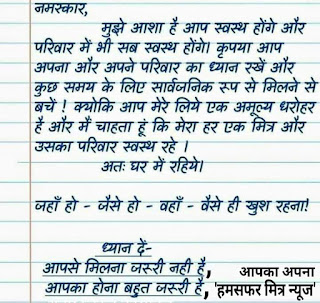 नमस्कार,
मुझे आशा है आप स्वस्थ होंगे और
परिवार में भी सब स्वस्थ होंगे। कृपया आप
अपना और अपने परिवार का ध्यान रखें और
कुछ समय के लिए सार्वजनिक रुप से मिलने से
बचें ! क्योकि आप मेरे लिये एक अमूल्य धरोहर
है और मैं चाहता हूं कि मेरा हर एक मित्र और
उसका परिवार स्वस्थ रहे ।
अतः घर में रहिये।
जहाँ हो - जैसे हो - वहाँ - वैसे ही खुश रहना!
ध्यान दें-
आपसे मिलना जरुरी नही है,
आपका होना बहुत जरुरी है,
आपका अपना
'हमसफर मित्र न्यूज'